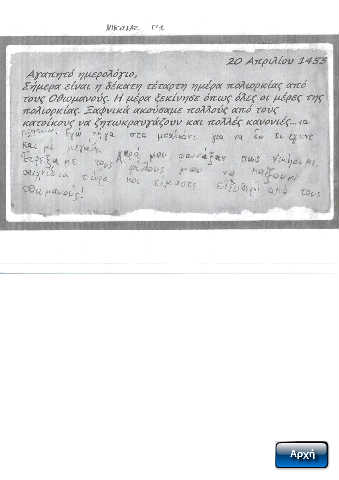 ΝΙΚΟΛΑΣ Γ'1
20 Απριλίου 1453
Αγαπητό ημερολόγιο,
Σήμερα είναι η δέκατη τέταρτη ημέρα πολιορκίας από
τους Οθωμανούς. Η μέρα ξεκίνησε όπως όλες οι μέρες της
πολιορκίας. Ξαφνικά ακούσαμε πολλούς από τους
κατοίκους να ζητωκραυγάζουν και πολλές κανονιές...
Εγώ πήγα στο μπαλκόνι για να δω τι έγινε
και με μεγάλη
μου φώναξαν πως νίκησαν.
τους φίλους μου να παίξουμε
τώρα και είμαστε ελεύθεροι από τους
οθωμανούς!
Αρχή